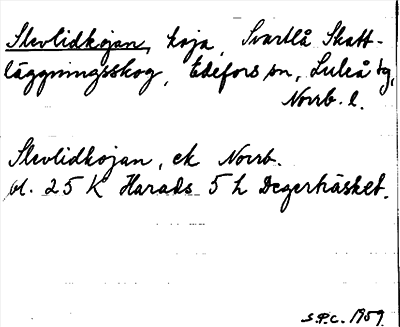 Slevlidkojan, koja, Svartlå Skatt-
läggningsskog, Edefors sn, Luleå tg,
Norrb. l.
Slevlidkojan, ek Norrb.
bl. 25 K Harads 5 h Degerträsket.
S.P.C. 1959.